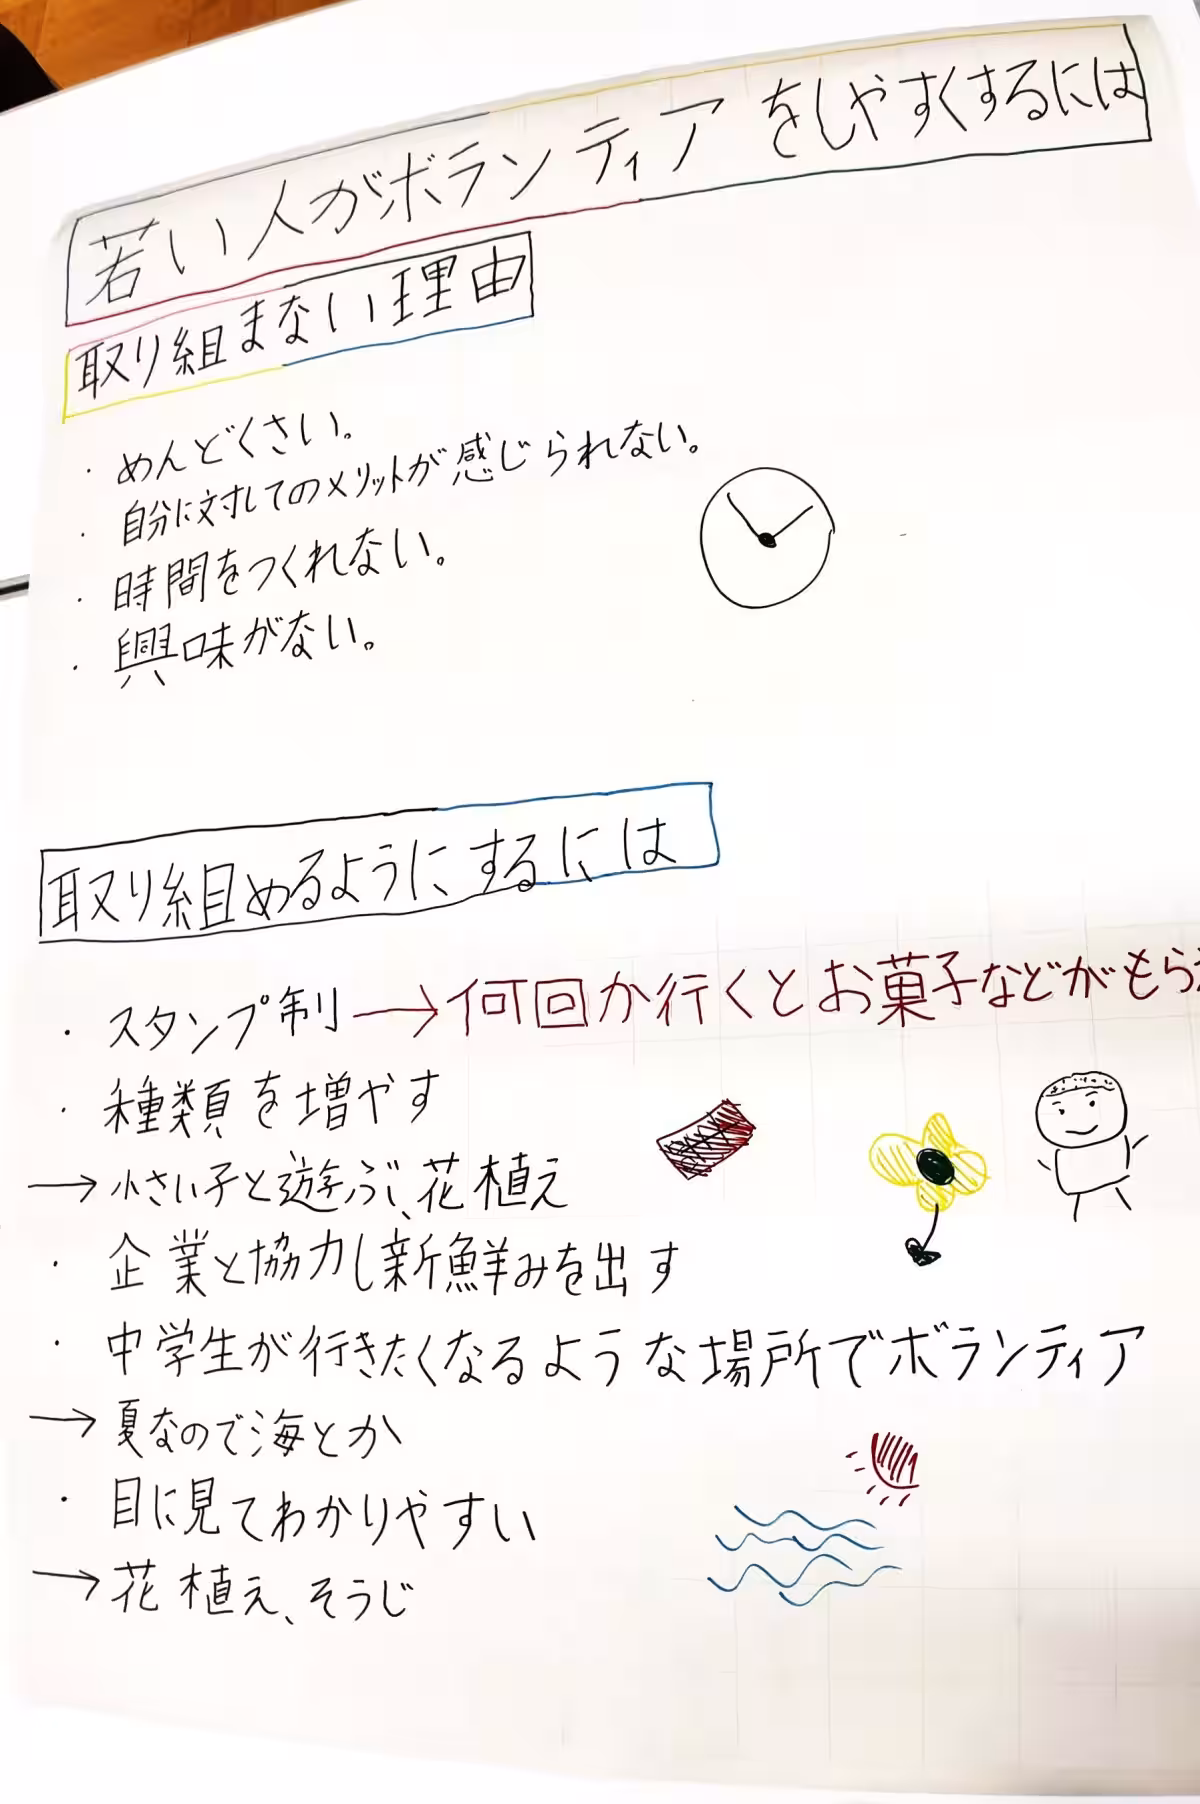 若い人がボランティアをしやすくするには
取り組まない理由
・めんどくさい。
・自分に対してのメリットが感じられない。
・時間をつくれない。
・興味がない。
取り組めるようにするには
・スタンプ制→何回か行くとお菓子などがもら
・種類を増やす
→小さい子と遊ぶ、花植え
・企業と協力し新鮮みを出す
・中学生が行きたくなるような場所でボランティア
→夏なので海とか
・目に見てわかりやすい
→花植え、そうじ